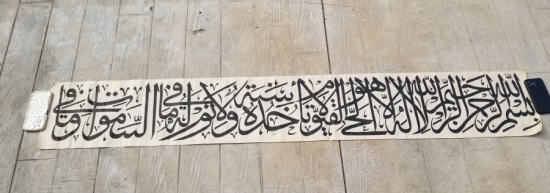 بسم الله الرحمن الرحيم الله لا إله إلا هو الحي القيوم لا تأخذه سنة ولا نوم له ما في السماوات